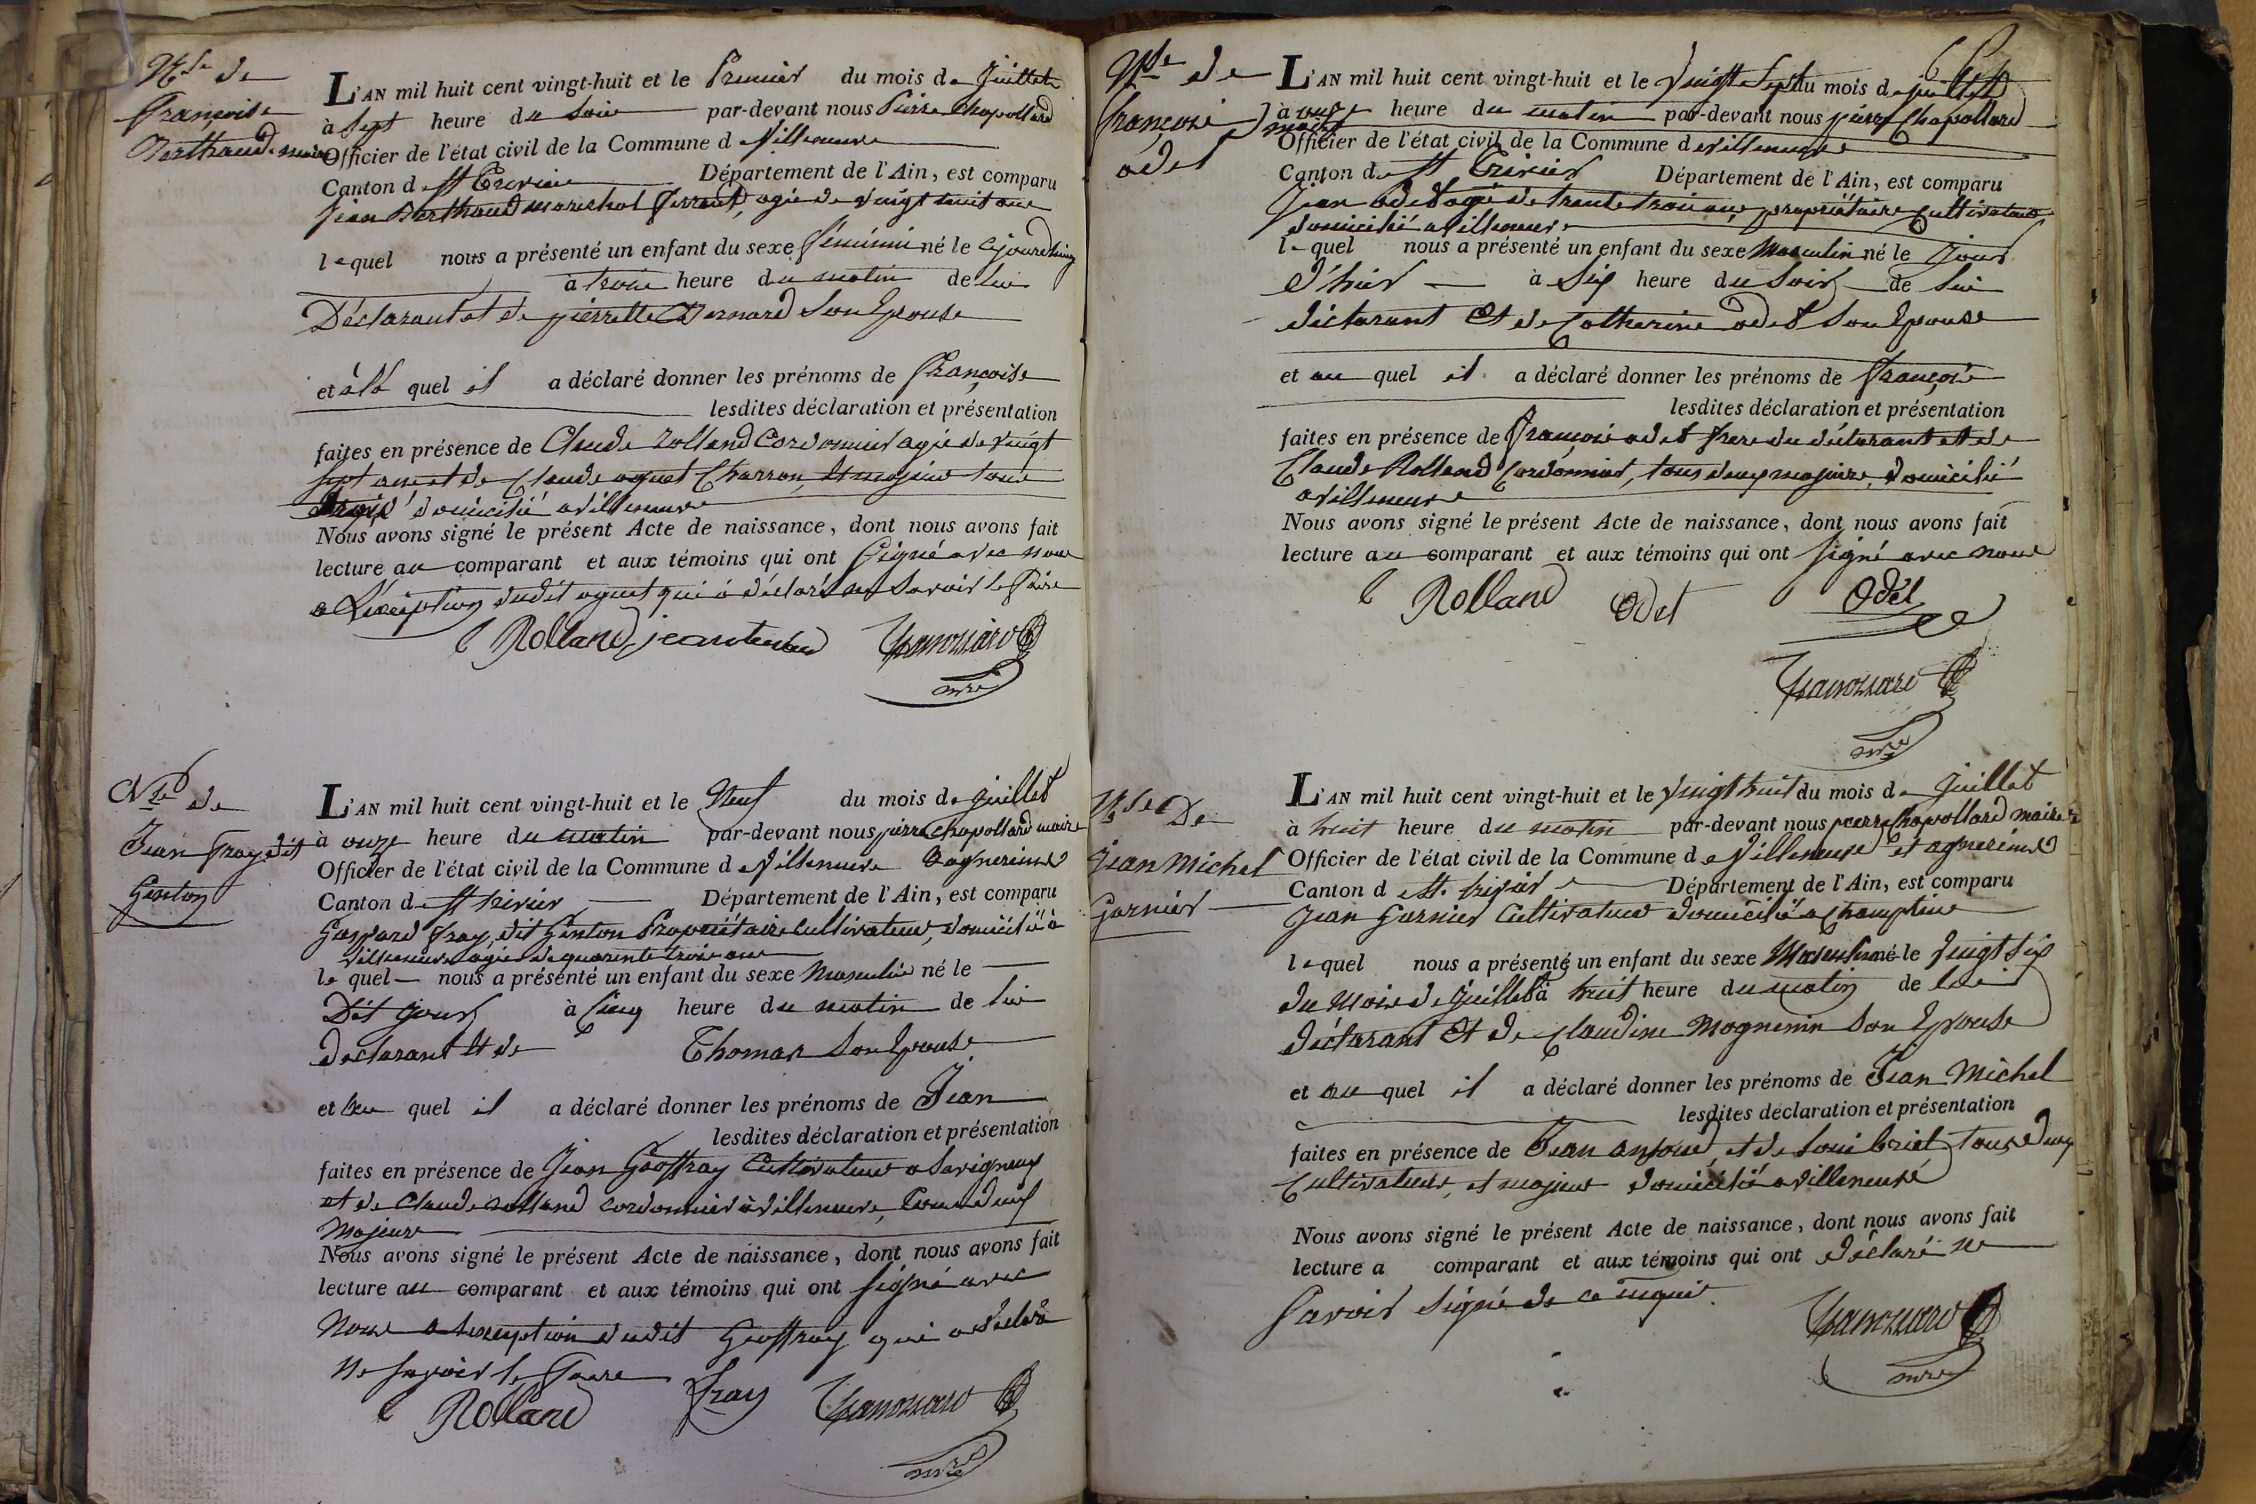 Nce de
Françoise
Berthaud
L'AN mil huit cent vingt-huit et le Premier du mois de Juillet
à Sept heure du Soir par-devant nous Pierre Chapollard
maire Officier de l'état civil de la Commune de Villeneuve
Canton de St Trivier Département de l'Ain, est comparu
Jean Berthaud marechal ferrant, agé de vingt huit ans
lequel nous a présenté un enfant du sexe féminin né le
à trois heure du matin de lui
Déclarant et de pierrette Bernard Son Epouse
et à la quel il a déclaré donner les prénoms de Françoise
lesdites déclaration et présentation
faites en présence de Claude Rolland Cordonnier agé de vingt
sept ans et de Claude aguet Charron, et majeur tous
domicilié a villeneuve
Nous avons signé le présent Acte de naissance, dont nous avons fait
lecture au comparant et aux témoins qui ont Signé avec nous
a L'exception dudit aguet qui a déclaré ne Savoir le faire
Rolland
Nce de
Jean Fray dit
Genton
L'AN mil huit cent vingt-huit et le Neuf du mois de Juillet
à onze heure du matin par-devant nous pierre Chapollard maire
Officier de l'état civil de la Commune de Villeneuve
Canton de St trivier Département de l'Ain, est comparu
Gaspard Fray, dit Genton Propriétaire Cultivateur, domicilié à
villeneuve agé de quarente trois ans
le quel nous a présenté un enfant du sexe Masculin né le
Dit jour à Cinq heure du matin de lui
Declarant et de Thomas Son Epouse
et au quel il a déclaré donner les prénoms de Jean
lesdites déclaration et présentation
faites en présence de Jean Geoffray Cultivateur a Savigneux
et de Claude rolland cordonnier à villeneuve, tous deux
Majeurs
Nous avons signé le présent Acte de naissance, dont nous avons fait
lecture au comparant et aux témoins qui ont signé avec
Nous a lexception dudit Geoffray qui a déclaré
Ne Savoir le Faire
Rolland Fray
Nce de
françois
odet
L'AN mil huit cent vingt-huit et le Vingt Sept du mois de juillet
à onze heure du matin par-devant nous pierre Chapollard
maire Officier de l'état civil de la Commune de villeneuve
Canton de St Trivier Département de l'Ain, est comparu
Jean odet agé de trente trois ans, propriétaire Cultivateur
domicilié a villeneuve
lequel nous a présenté un enfant du sexe Masculin né le Jour
d'hier à Six heure du Soir de lui
déclarant et de Catherine odet Son Epouse
et au quel il a déclaré donner les prénoms de François
lesdites déclaration et présentation
faites en présence de François odet frere du déclarant et de
Claude Rolland Cordonnier, tous deux majeurs, domicilié
a villeneuve
Nous avons signé le présent Acte de naissance, dont nous avons fait
lecture au comparant et aux témoins qui ont signé avec nous
Rolland Odet Odet
Nce De
Jean Michel
Garnier
L'AN mil huit cent vingt-huit et le vingt huit du mois de Juillet
à huit heure du matin par-devant nous pierre Chapollard maire
Officier de l'état civil de la Commune de Villeneuve et agnereins
Canton de St. trivier Département de l'Ain, est comparu
Jean Garnier Cultivateur domicilié a Champtin
lequel nous a présenté un enfant du sexe Masculin né le vingt six
du mois de juillet à huit heure du matin de lui
déclarant et de Claudine Mognenin Son Epouse
et au quel il a déclaré donner les prénoms de Jean Michel
lesdites déclaration et présentation
faites en présence de Jean et de tous deux
Cultivateur, et majeur domicilié a villeneuve
Nous avons signé le présent Acte de naissance, dont nous avons fait
lecture a comparant et aux témoins qui ont déclaré ne
Savoir signé de ce requis.